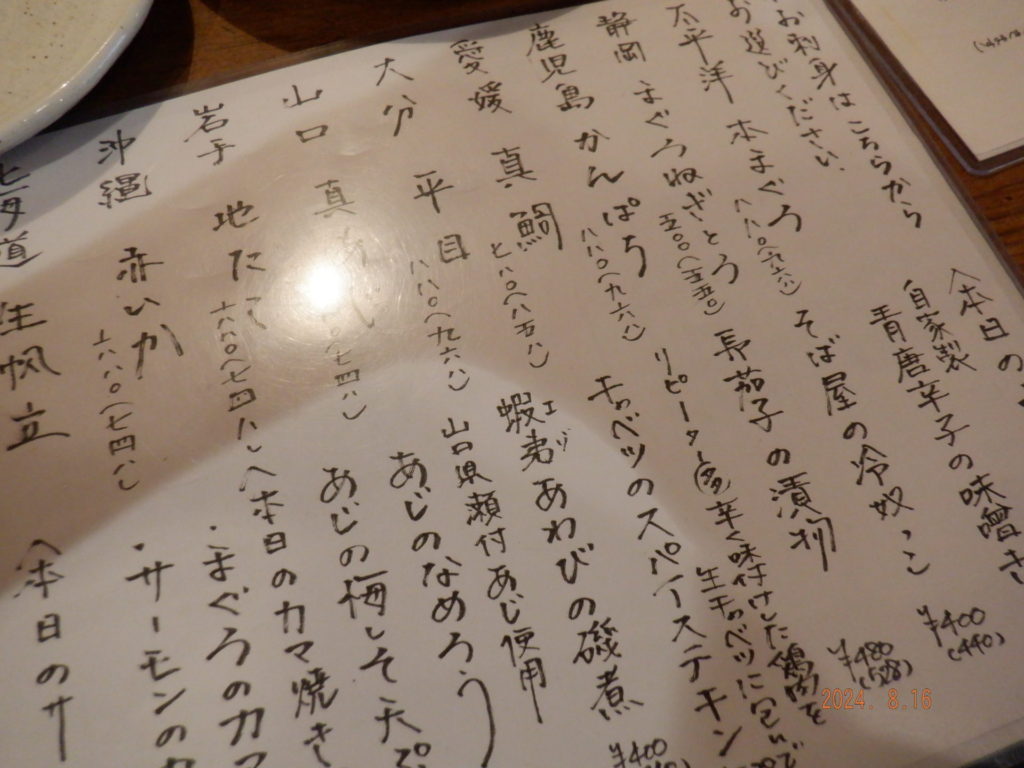 お刺身はこちらから
お選びください
太平洋 本まぐろ
八八〇(九六八)
静岡 まぐろねぎとろ
五〇〇(五五〇)
鹿児島 かんぱち
八八〇(九六八)
愛媛 真鯛
七八〇(八五八)
大分 平目
八八〇(九六八)
山口 真あじ
岩手 地だこ
六八〇(七四八)
沖縄 赤いか
六八〇(七四八)
北海道 生帆立
〈本日の
自家製
青唐辛子の味噌
¥400
(440)
そば屋の冷奴
¥480
(528)
長茄子の漬物
リピーター
辛く味付けした鶏肉を
生キャベツに包んで
キャベツのスパイーステキン
エゾ
蝦夷あわびの磯煮
山口県瀬付あじ使用
あじのなめろう
あじの梅しそ天ぷ
〈本日のカマ焼き
・まぐろのカマ
・サーモンのカ
〈本日のサ
¥400
2024. 8.16